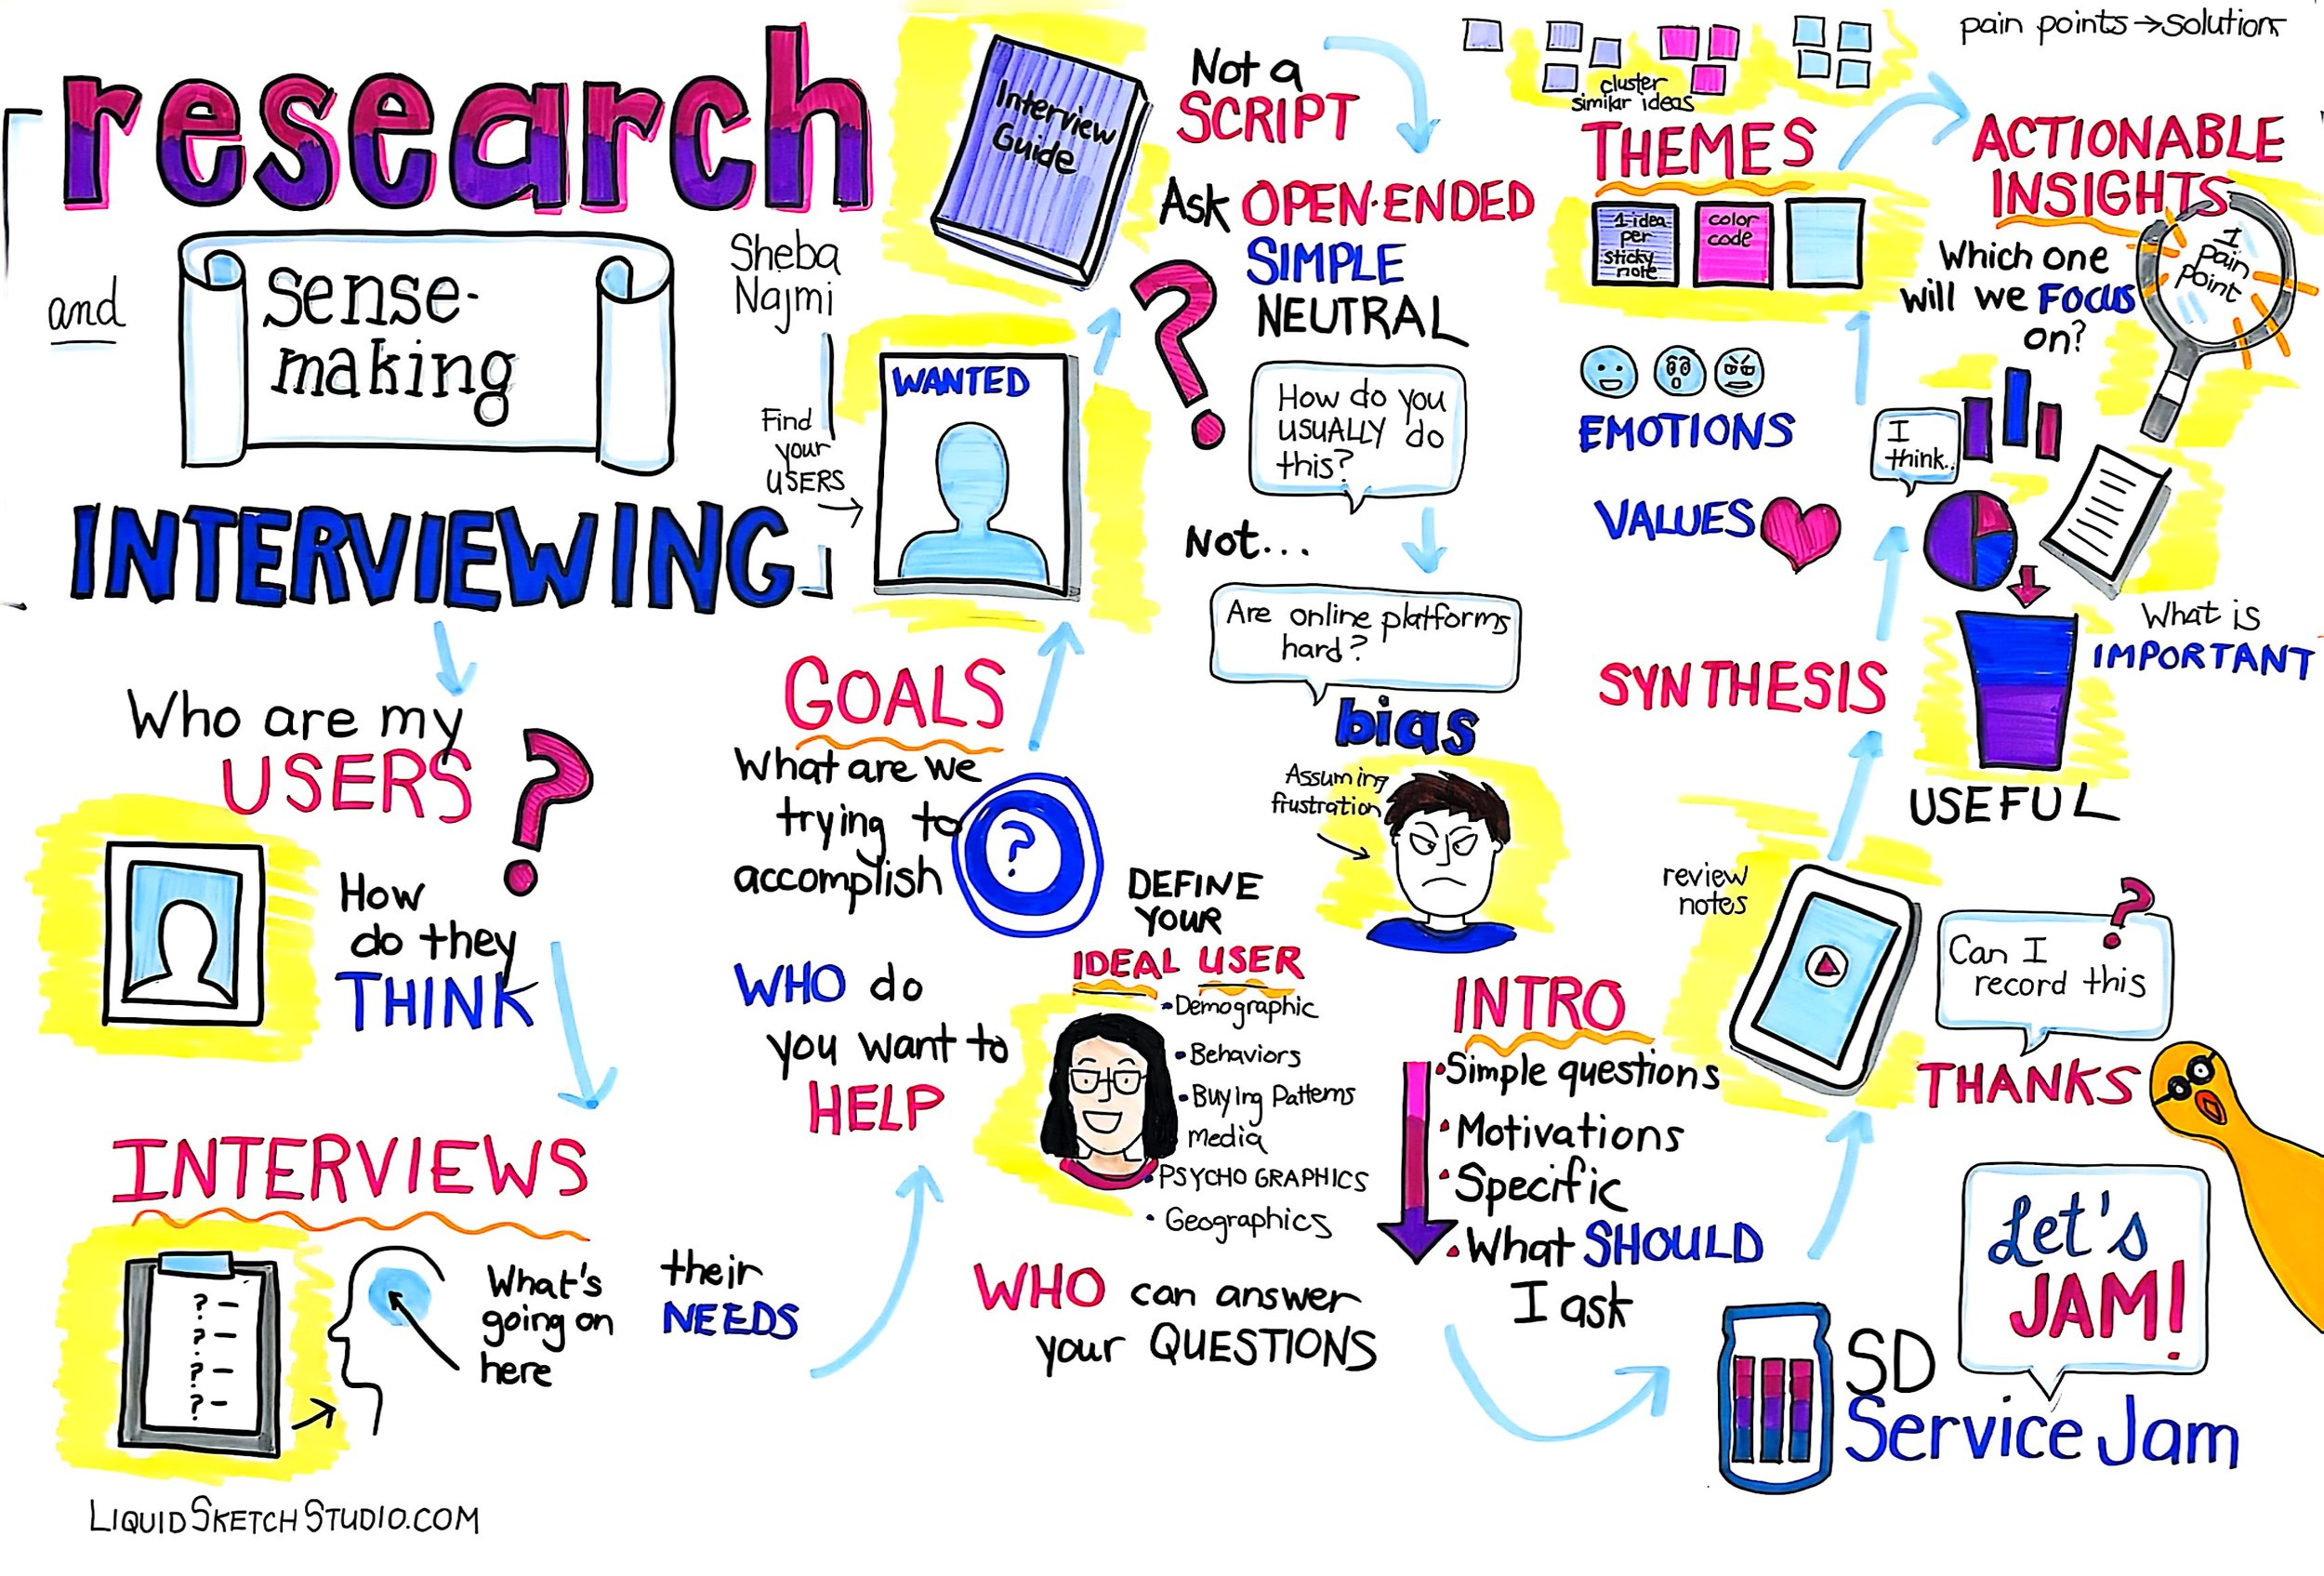 research
and
sense-
making
INTERVIEWING
Sheba
Najmi
Who are my
USERS
?
How
do they
THINK
INTERVIEWS
? –
? –
? –
? –
What's
going on
here
their
NEEDS
GOALS
What are we
trying to
accomplish
?
WHO do
you want to
HELP
DEFINE
YOUR
IDEAL USER
• Demographic
• Behaviors
• Buying Patterns
media
• PSYCHOGRAPHICS
• Geographics
WHO can answer
your QUESTIONS
Find
your
USERS
WANTED
Interview
Guide
Not a
SCRIPT
Ask OPEN-ENDED
SIMPLE
NEUTRAL
?
How do you
usuALLY do
this?
Not...
Are online platforms
hard?
bias
Assuming
frustration
INTRO
• Simple questions
• Motivations
• Specific
• What SHOULD
I ask
review
notes
Can I
record this
?
THANKS
SYNTHESIS
What is
IMPORTANT
USEFUL
VALUES
EMOTIONS
I
think..
THEMES
1 idea
per
sticky
note
color
code
cluster
similar ideas
pain points → Solutions
ACTIONABLE
INSIGHTS
Which one
will we FOCUS
on?
1
pain
point
Let's
JAM!
SD
Service Jam
LIQUIDSKETCHSTUDIO.COM